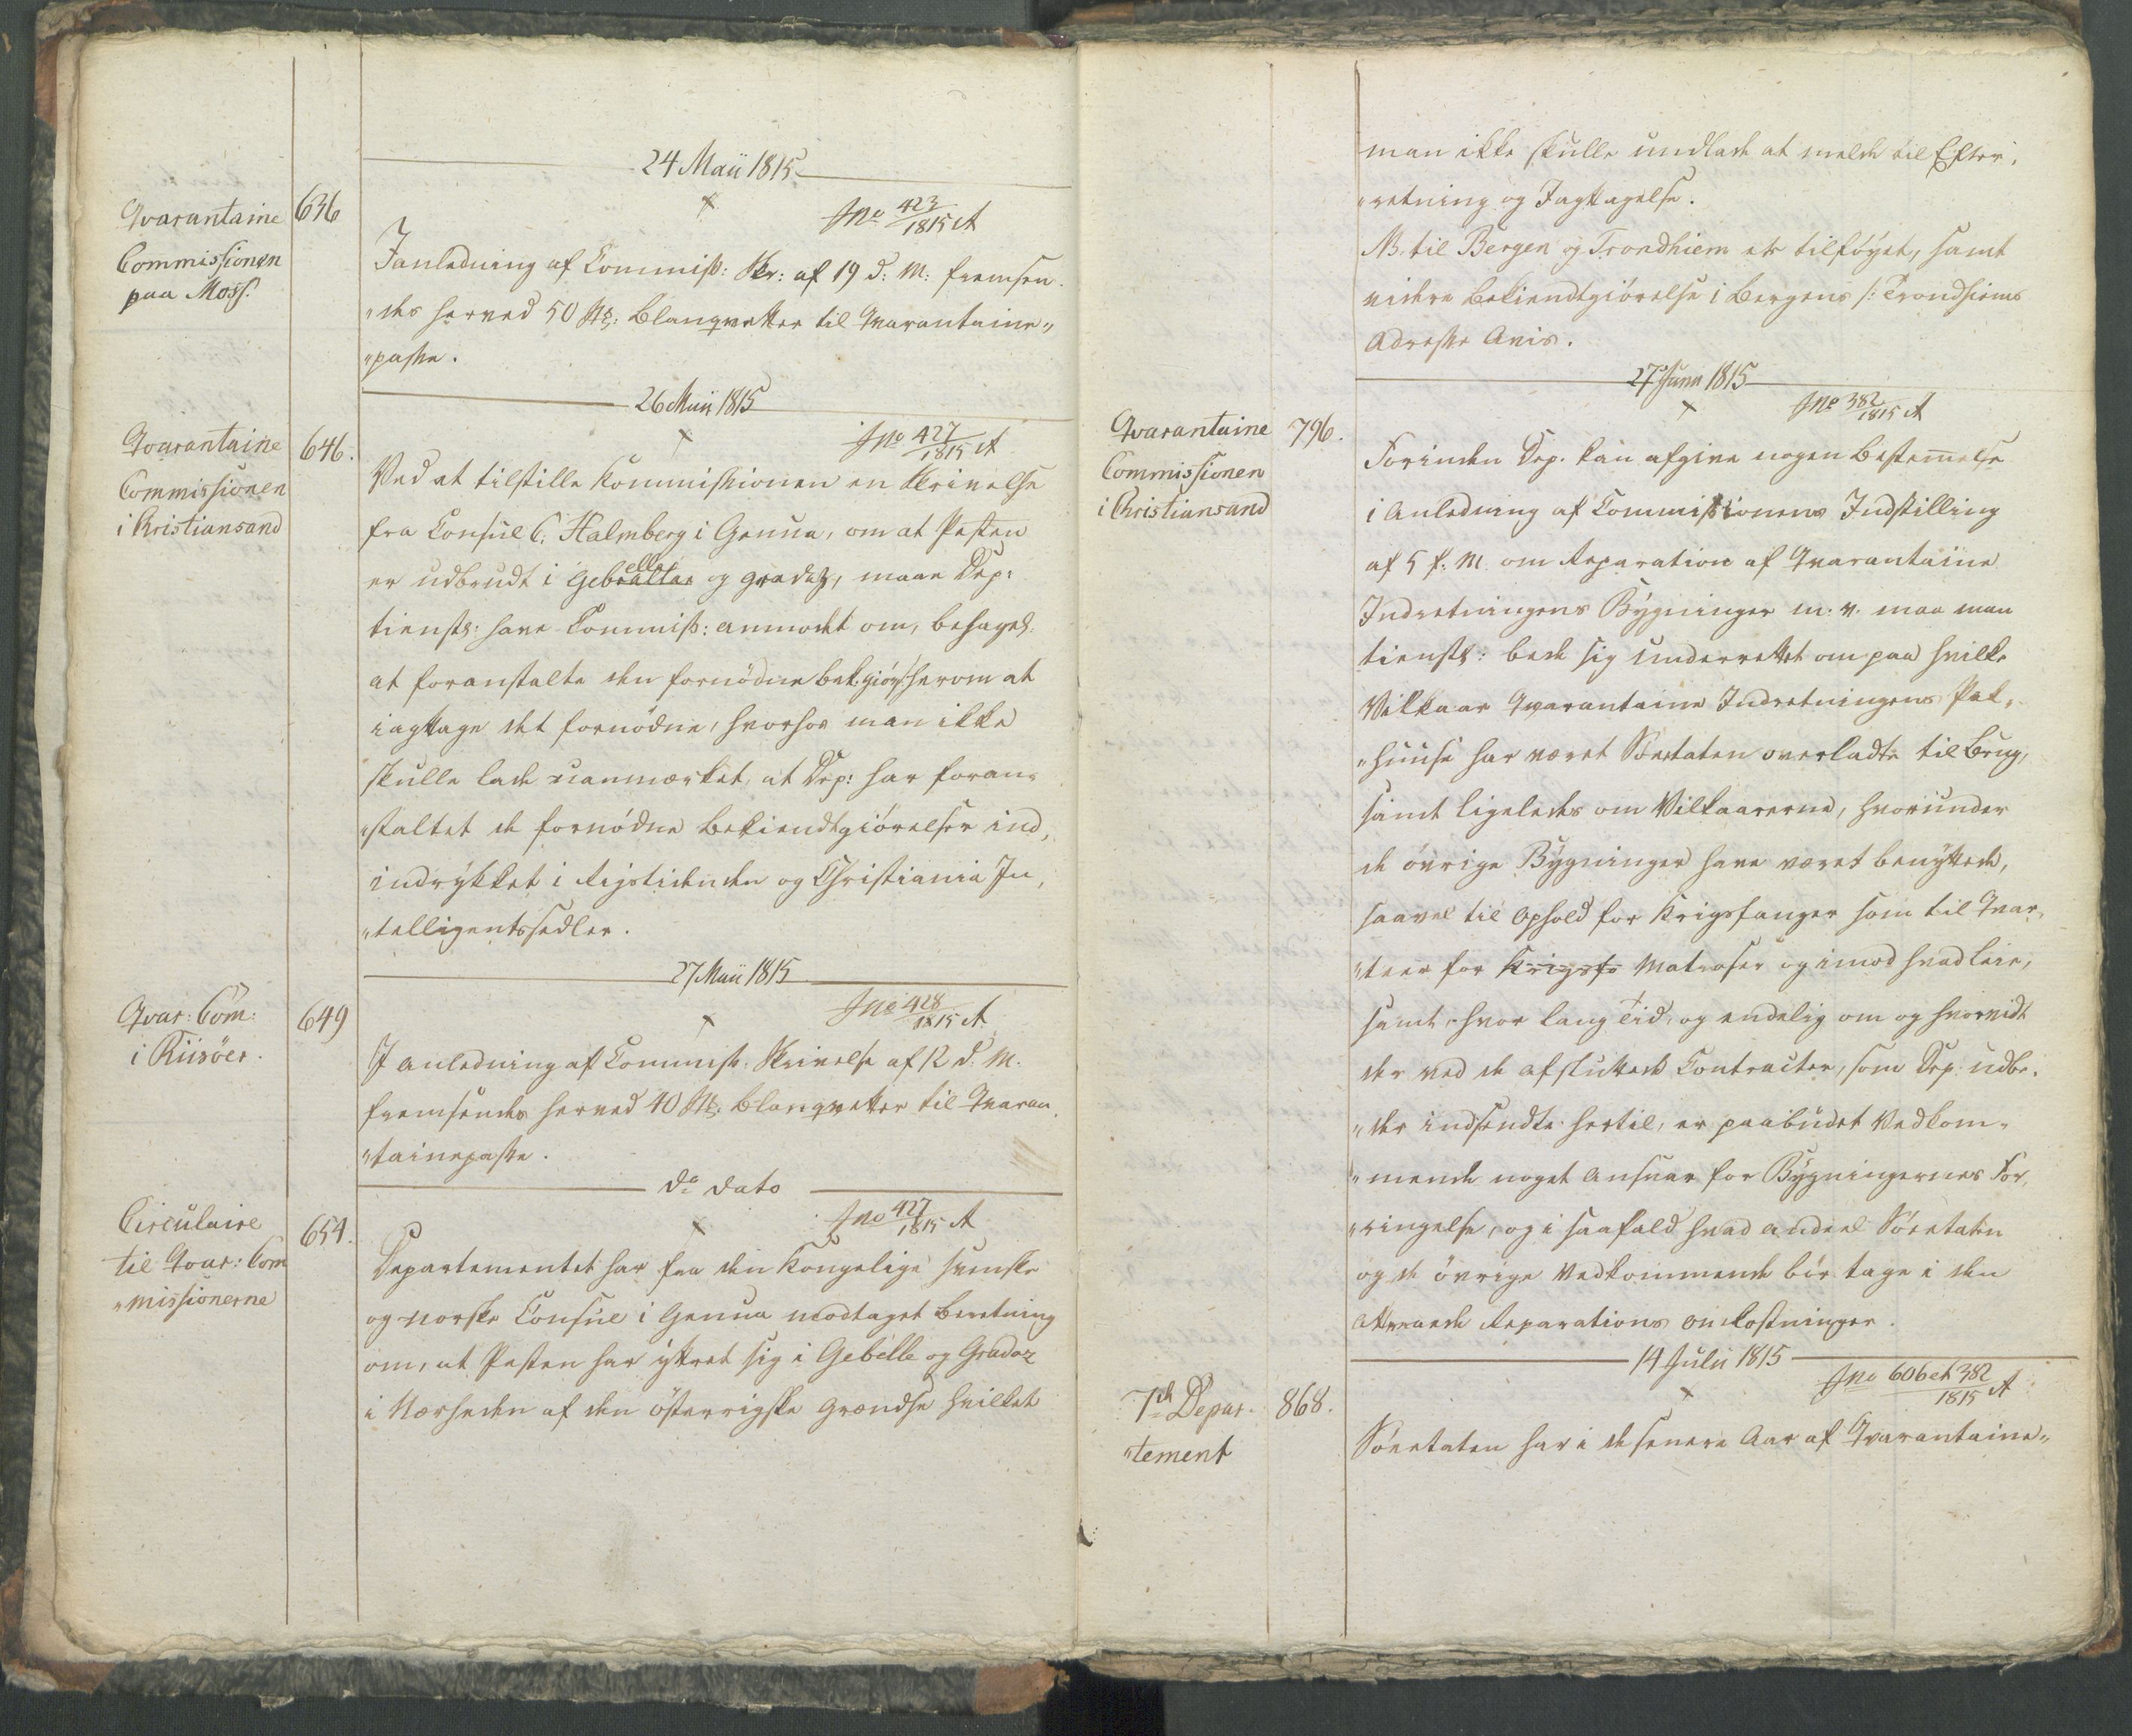 24 Maii 1815
Qvarantaine
Commissionen
paa Moss.
636
Jno 423/1815 A
I anledning af Commiß: Skr: af 19 d: M: fremsen-
"des herved 50 Stk: Blanqvetter til Qvarantaine"
"passe.
26 Maii 1815
Qvarantaine
Commissionen
i Kristiansand
646.
Jno 427/1815 A
Ved at tilstille Kommissionen en Skrivelse
fra Consul C. Halmberg i Genua, om at Pesten
er udbrudt i Gebraltar elle og Gradaz, maae Dep:
tienstl: have Commiß: anmodet om, behagel:
at foranstalte den fornödne bek:giör: herom at
iagttage det fornödne, hvorhos man ikke
skulle lade uanmærket, at Dep: har foran-
"staltet de fornödne Bekiendtgiörelser ind,
indrykket i Rigstidenden og Christiania In,
"telligentssedler.
27 Maii 1815
Qvar: Com:
i Riisöer.
649
Jno 428/1815 A
I anledning af Commiß: Skrivelse af 12 d. M.
fremsendes herved 40 Stk: Blanqvetter til Qvaran
"tainepasse.
do Dato
Circulaire
til Qvar: Com
"missionerne
654.
Jno 427/1815 A
Departementet har fra den Kongelige svenske
og norske Consul i Genua modtaget Beretning
om, at Pesten har yttret sig i Gebelle og Gradaz
i Nærheden af den Österrigske Grændse hvilket
man ikke skulle undlade at melde til Efter,
"retning og Iagttagelse.
NB. til Bergen og Trondhiem er tilföyet, samt
videre Bekiendtgiörelse i Bergens /: Trondhiems
Adresse Avis.
27 Juni 1815
Qvarantaine
Commissionen
i Christiansand
796.
Jno 382/1815 A
Forinden Dep. kan afgive nogen Bestemmelse
i Anledning af Commissionens Indstilling
af 5 f. M. om Reparation af Qvarantaine
Indretningens Bygninger m: v. maa man
tienstl: bede sig underrettet om paa hvilke
Vilkaar Qvarantaine Indretningens Pak,
"huuse har været Söeetaten overladte til Brug,
samt ligeledes om Vilkaarerne, hvorunder
de övrige Bygninger have været benyttede,
saavel til Ophold for Krigsfanger som til Qvar,
"teer for Krigsfa Matroser og imod hvad Leie,
samt hvor lang Tid, og endelig om og hvorvidt
der ved de afsluttede Contracter, som Dep. udbe-
"des indsendte hertil, er paabudet Vedkom-
"mende noget Ansvar for Bygningernes For,
"ringelse, og i saafald hvad Andeel Söeetaten
og de övrige Vedkommende bör tage i den
attraaede Reparations Omkostninger.
14 Julii 1815
7de Depar-
"tement
868.
Jno 606 et 382/1815 A
Söeetaten har i de senere Aar af Qvarantaine"